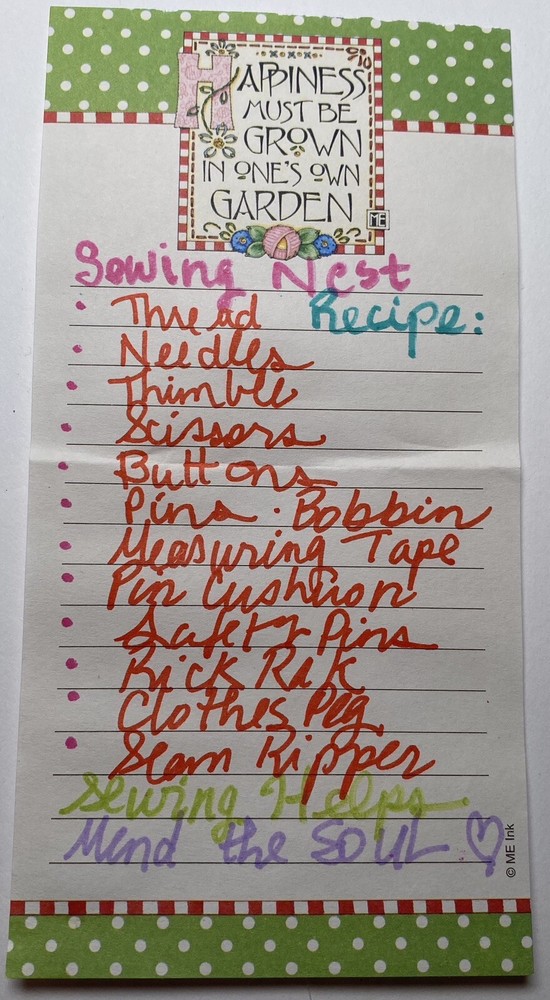 HAPPINESS
MUST BE
GROWN
IN ONE'S OWN
GARDEN
ME
Sewing Nest
Recipe:
• Thread
• Needles
• Thimble
• Scissors
• Buttons
• Pins · Bobbin
• Measuring Tape
• Pin Cushion
• Safety Pins
• Rick Rak
• Clothes Peg
• Seam Ripper
Sewing Helps
Mend the SOUL ♡
© ME Ink